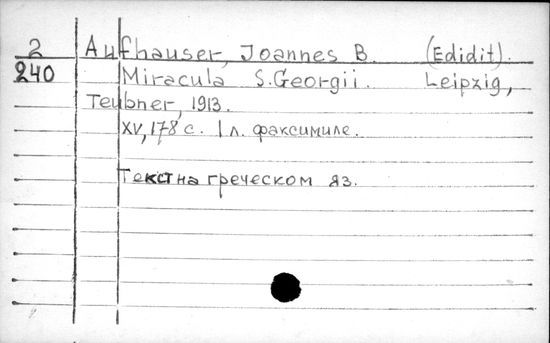 2 Aufhauser, Joannes B. (Edidit).
240 Miracula S. Georgii. Leipzig,
Teubner, 1913.
XV, 178 с. 1 л. факсимиле.
Текст на греческом яз.